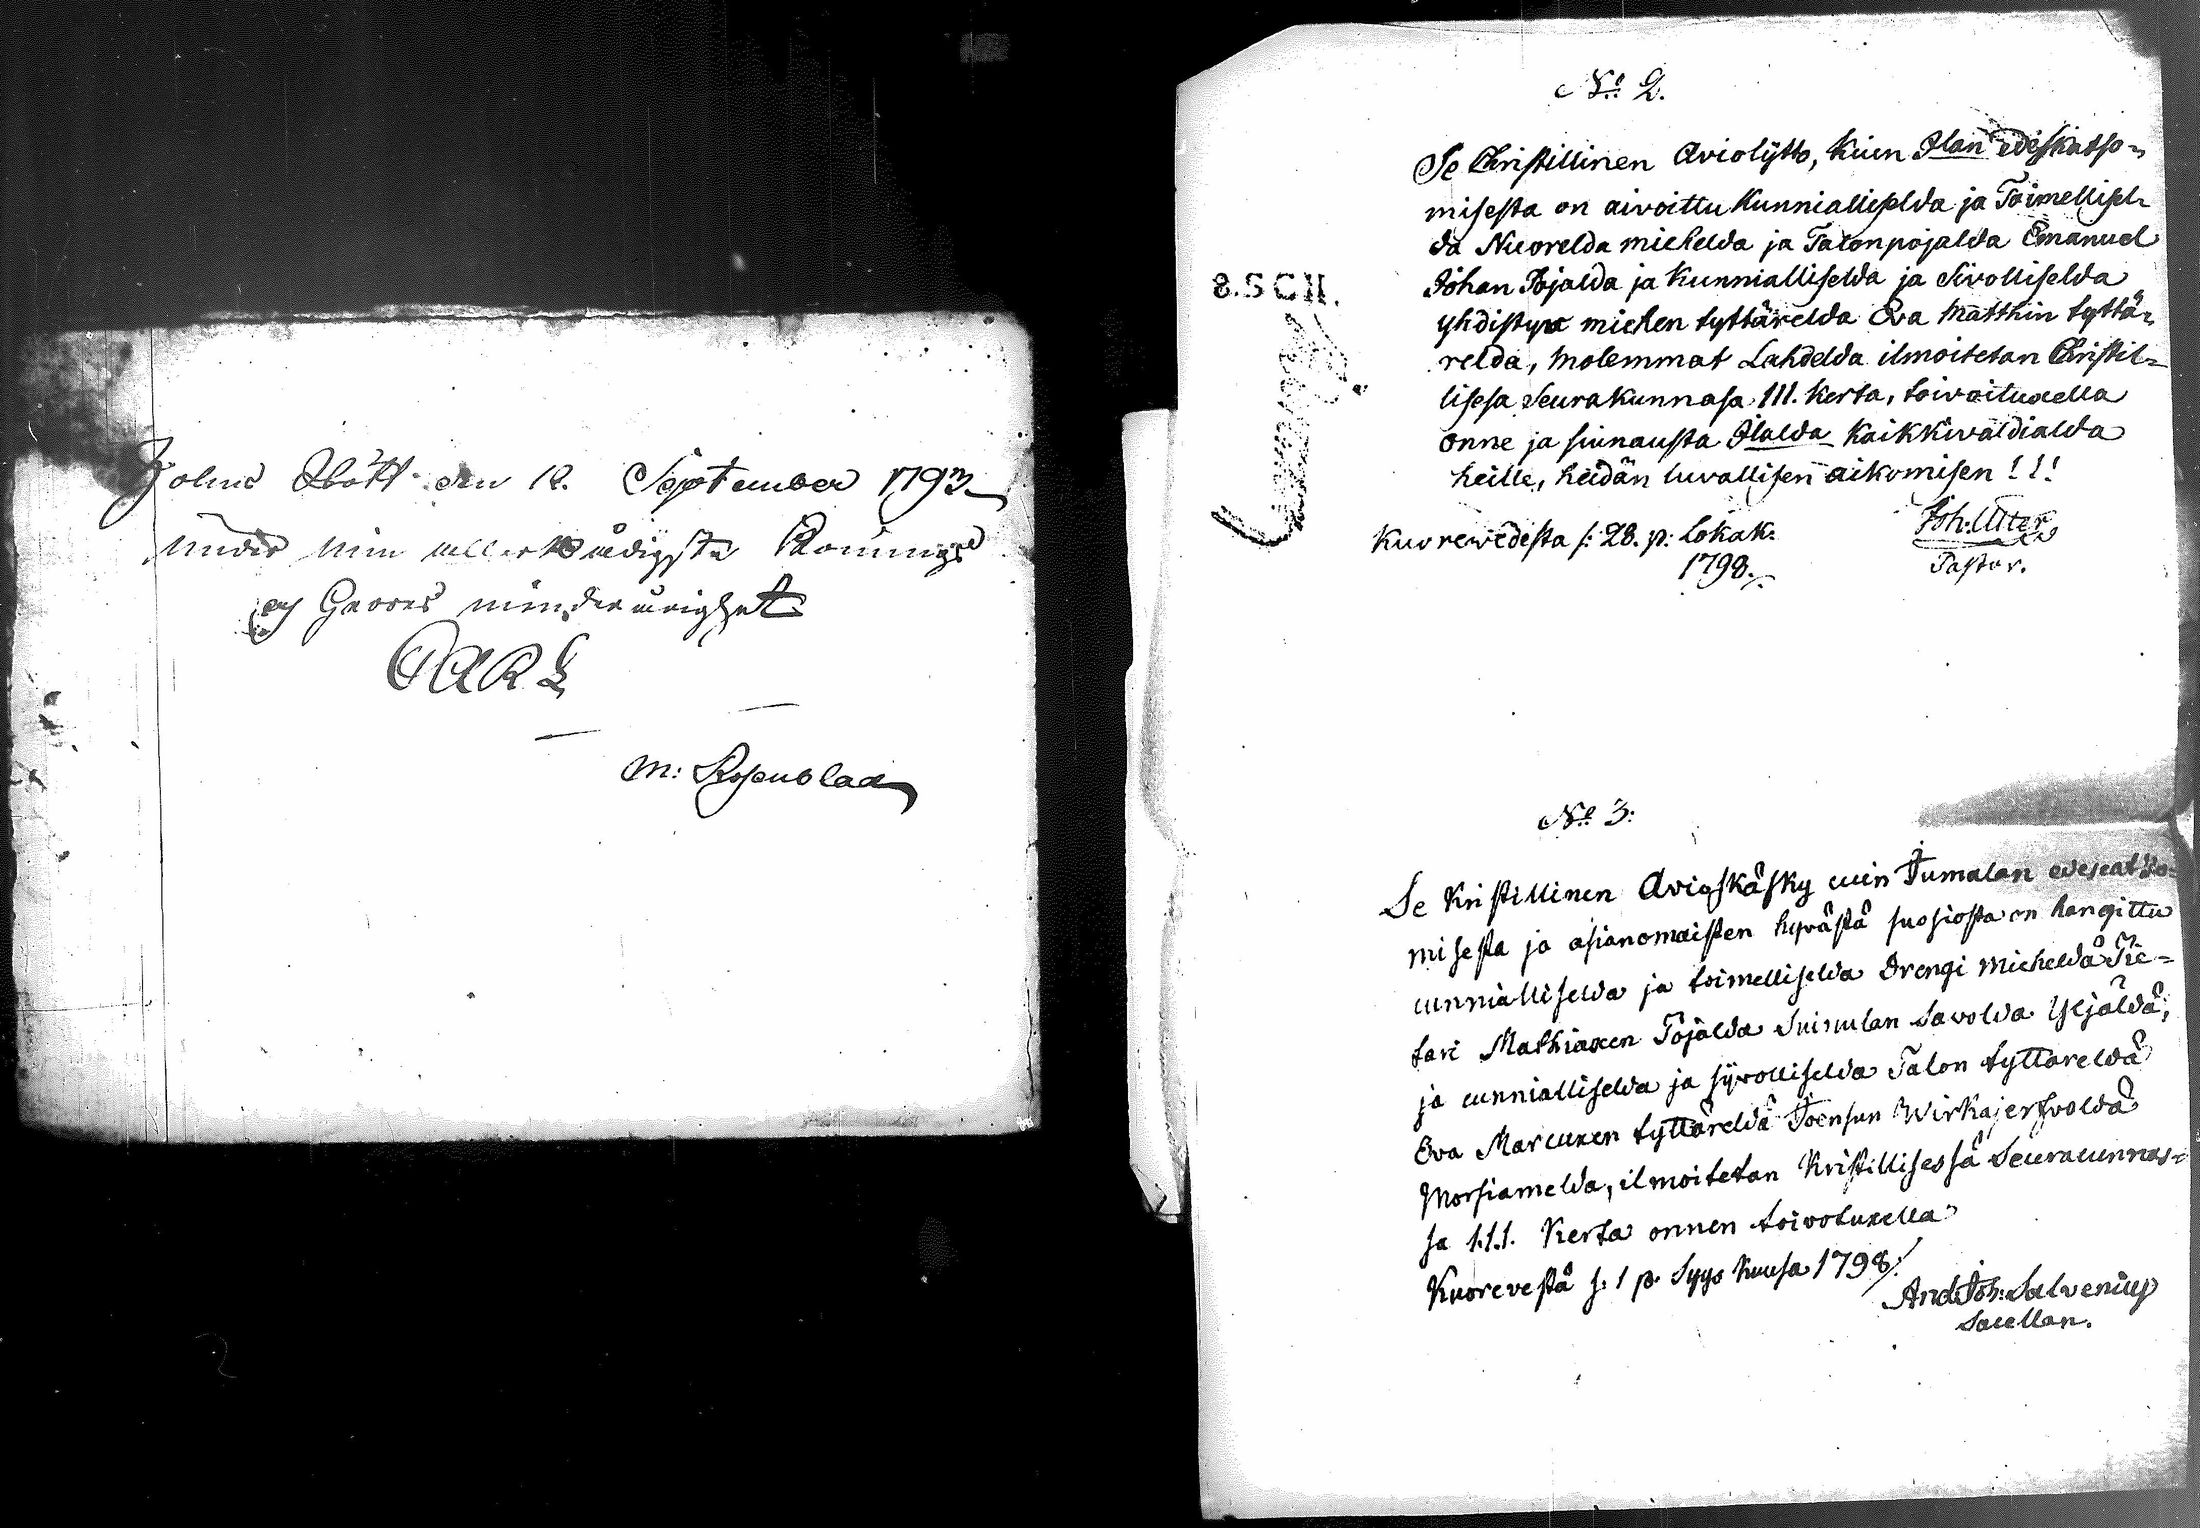 holms Slått den 12. September 1793
under min allernådigste Konungs
och Herres minderårighet
CARL
M: Rosenblad
No 2.
Se Christillinen Aviolijtto, kuin Jlan edeskatso=
misesta on aivoittu kunnialliselda ja Toimellisel=
da Nuorelda miehelda ja Talonpojalda Emanuel
Johan Pojalda ja kunnialliselda ja Sivolliselda
yhdistyx miehen tyttärelda Eva Matthin tyttä=
relda, molemmat Lahdelda ilmoitetan Christil=
lisesa Seurakunnasa III. kerta, toivoituxella
onne ja siunausta Jlalda kaikkivaldialda
heille, heidän luvallisen aikomisen!!!
Kuorewedesta s: 28. p: Lokak.
1798.
Joh: Uter
Pastor.
8.SCH.
No 3:
Se Kristillinen Avioskäsky cuin Jumalan edescatzo=
misesta ja asianomaisten hyvästä suosiosta on hangittu
cunnialliselda ja toimelliselda Drengi mieheldä Tie=
tari Mathiaxen Pojalda Suinulan Savolda Yljäldä,
ja cunnialliselda ja sijvolliselda Talon tyttäreldä
Eva Marcuxen tyttäreldä Joensun Wirkajerfvoldä
Morsiamelda, ilmoitetan Kristillisessä Seuracunnas=
sa 1.1.1. Kerta onnen toivotuxella
Kuorevestä s: 1 p. Syys kuusa 1798.
And: Joh: Salvenius
Sacellan.